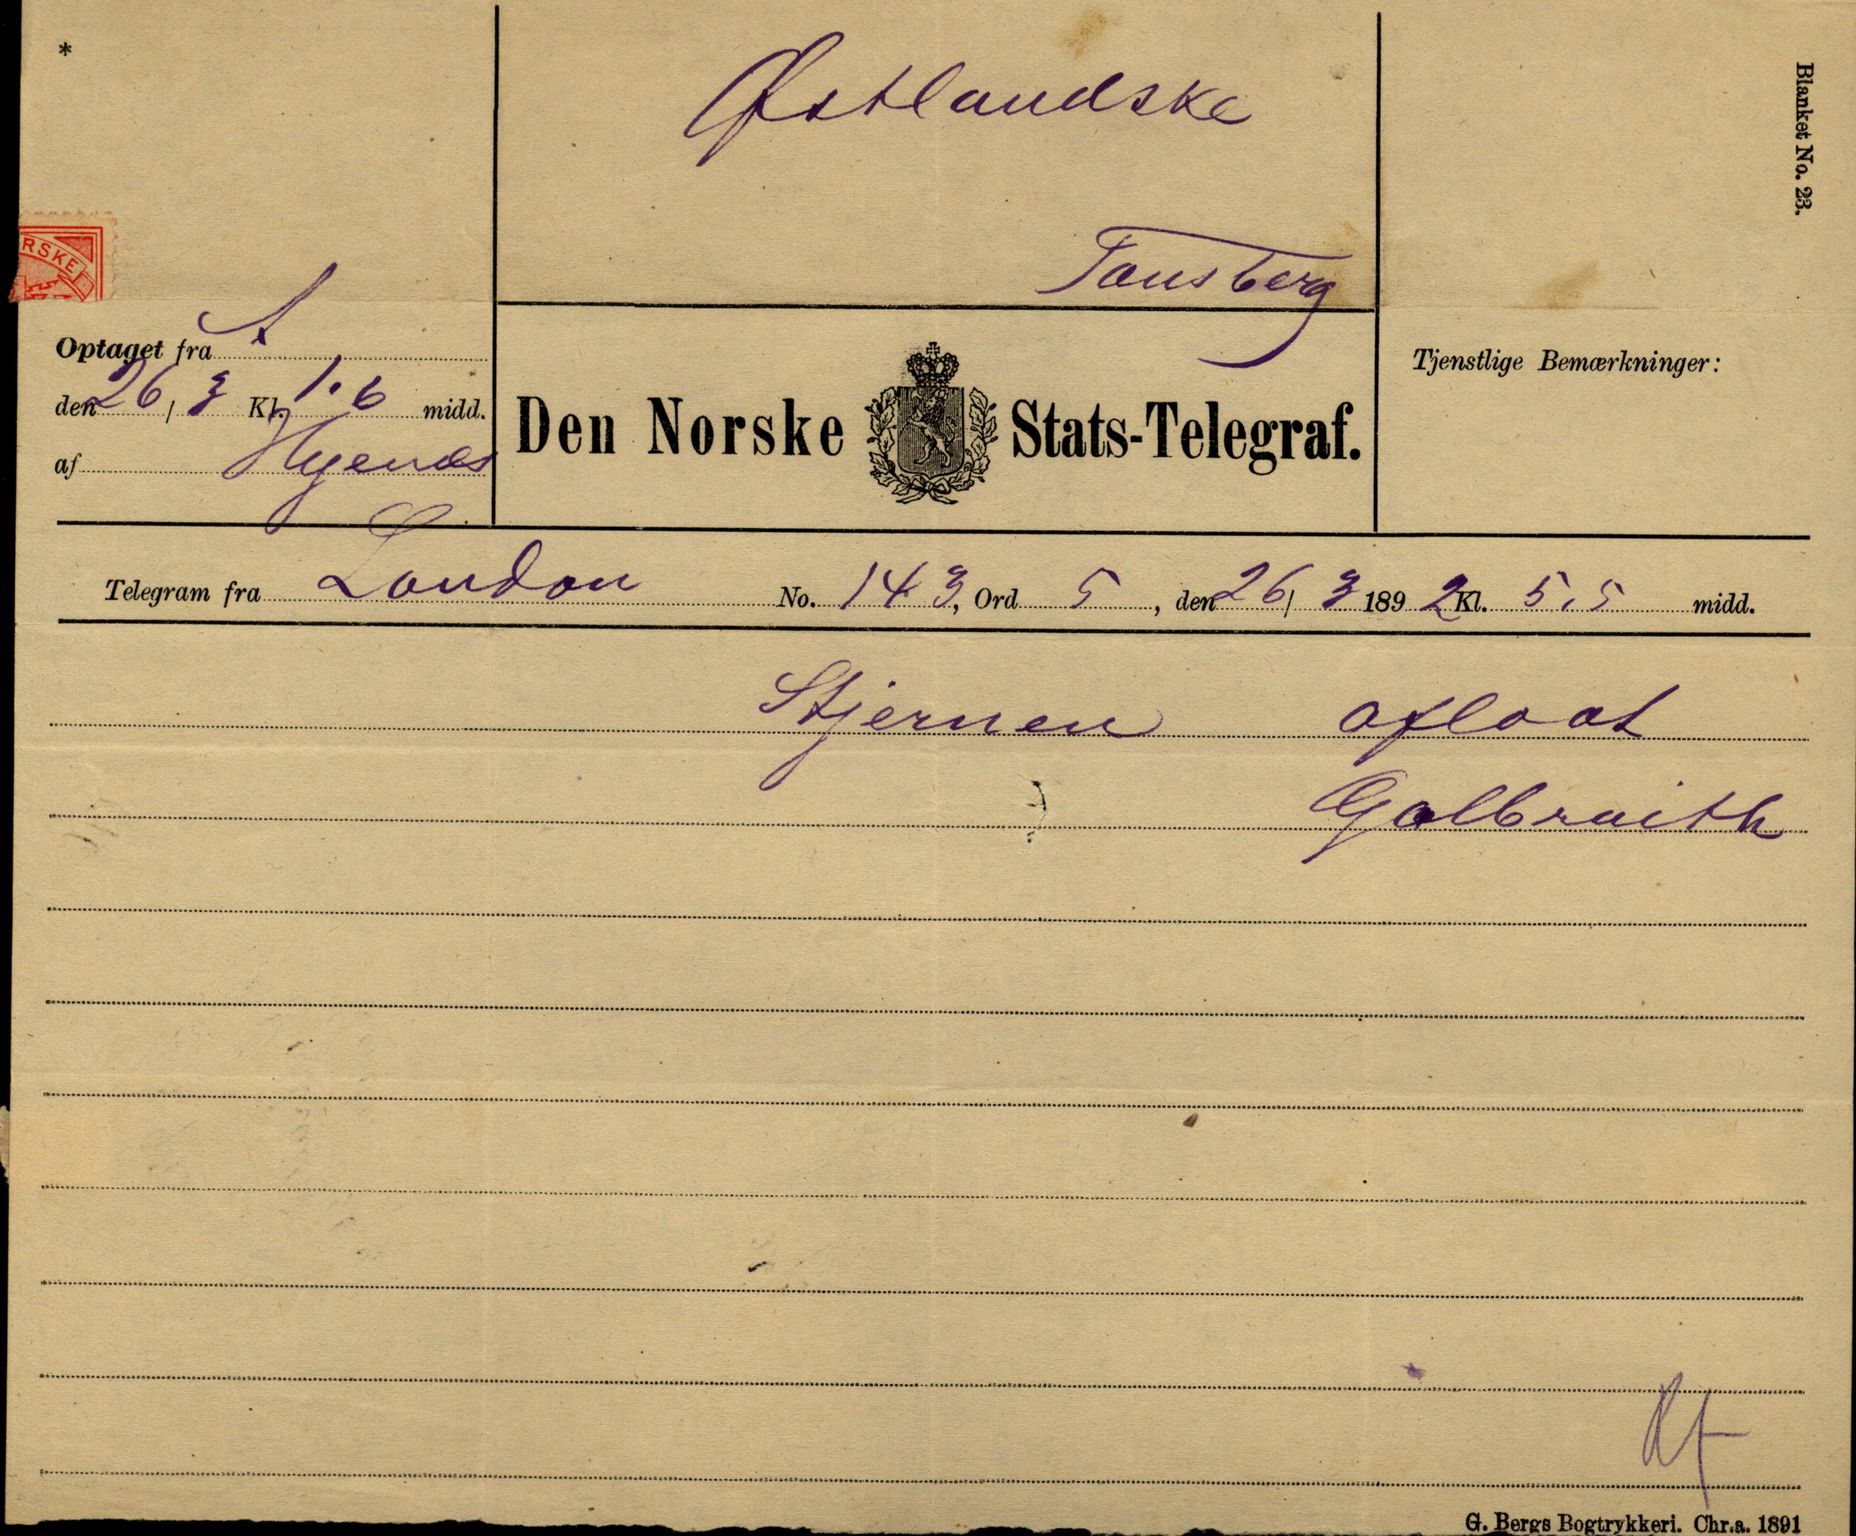 *
Østlandske
Blanket No. 23.
Tønsberg
RSKE
Optaget fra A
den 26/3 Kl. 1.6 midd.
af Hyenæs
Den Norske Stats-Telegraf.
Tjenstlige Bemærkninger:
Telegram fra London No. 143, Ord 5, den 26/3 1892 Kl. 5,5 midd.
Stjernen afloat
Galbraith
G. Bergs Bogtrykkeri. Chr.a. 1891